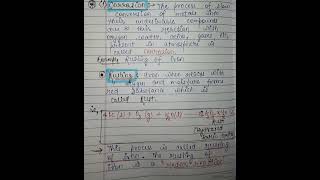 Corrosion :- The process of slow
conversion of metals into
their undesirable compounds
due to their reaction with
oxygen, water, acids, gases etc.
present in atmosphere is
called corrosion.
Example Rusting of Iron
Rusting : Iron when reacts with
oxygen and moisture forms
red substance which is
called Rust.
Rust
→ This process is called rusting
of Iron. The rusting of
Iron is a